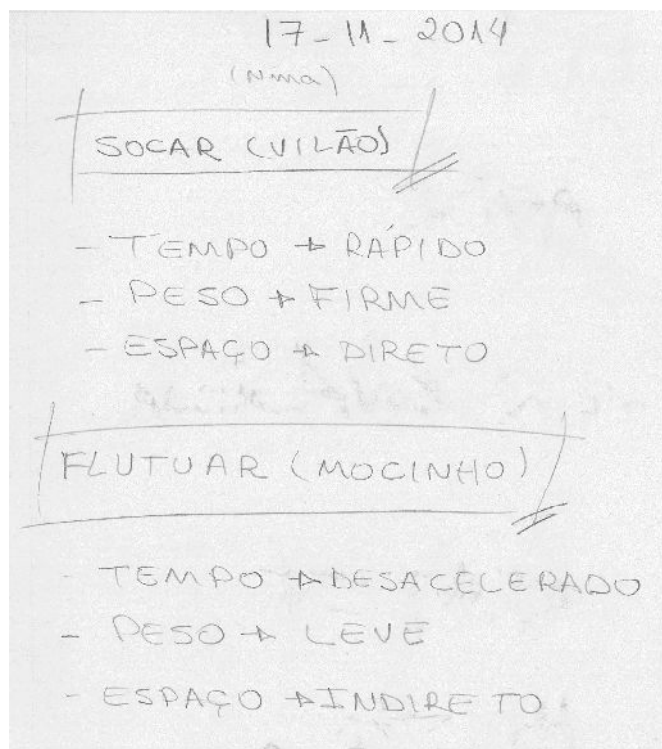 17-11-2014
(Nina)
SOCAR (VILÃO)
- TEMPO → RÁPIDO
- PESO → FIRME
- ESPAÇO → DIRETO
FLUTUAR (MOCINHO)
- TEMPO → DESACELERADO
- PESO → LEVE
- ESPAÇO → INDIRETO